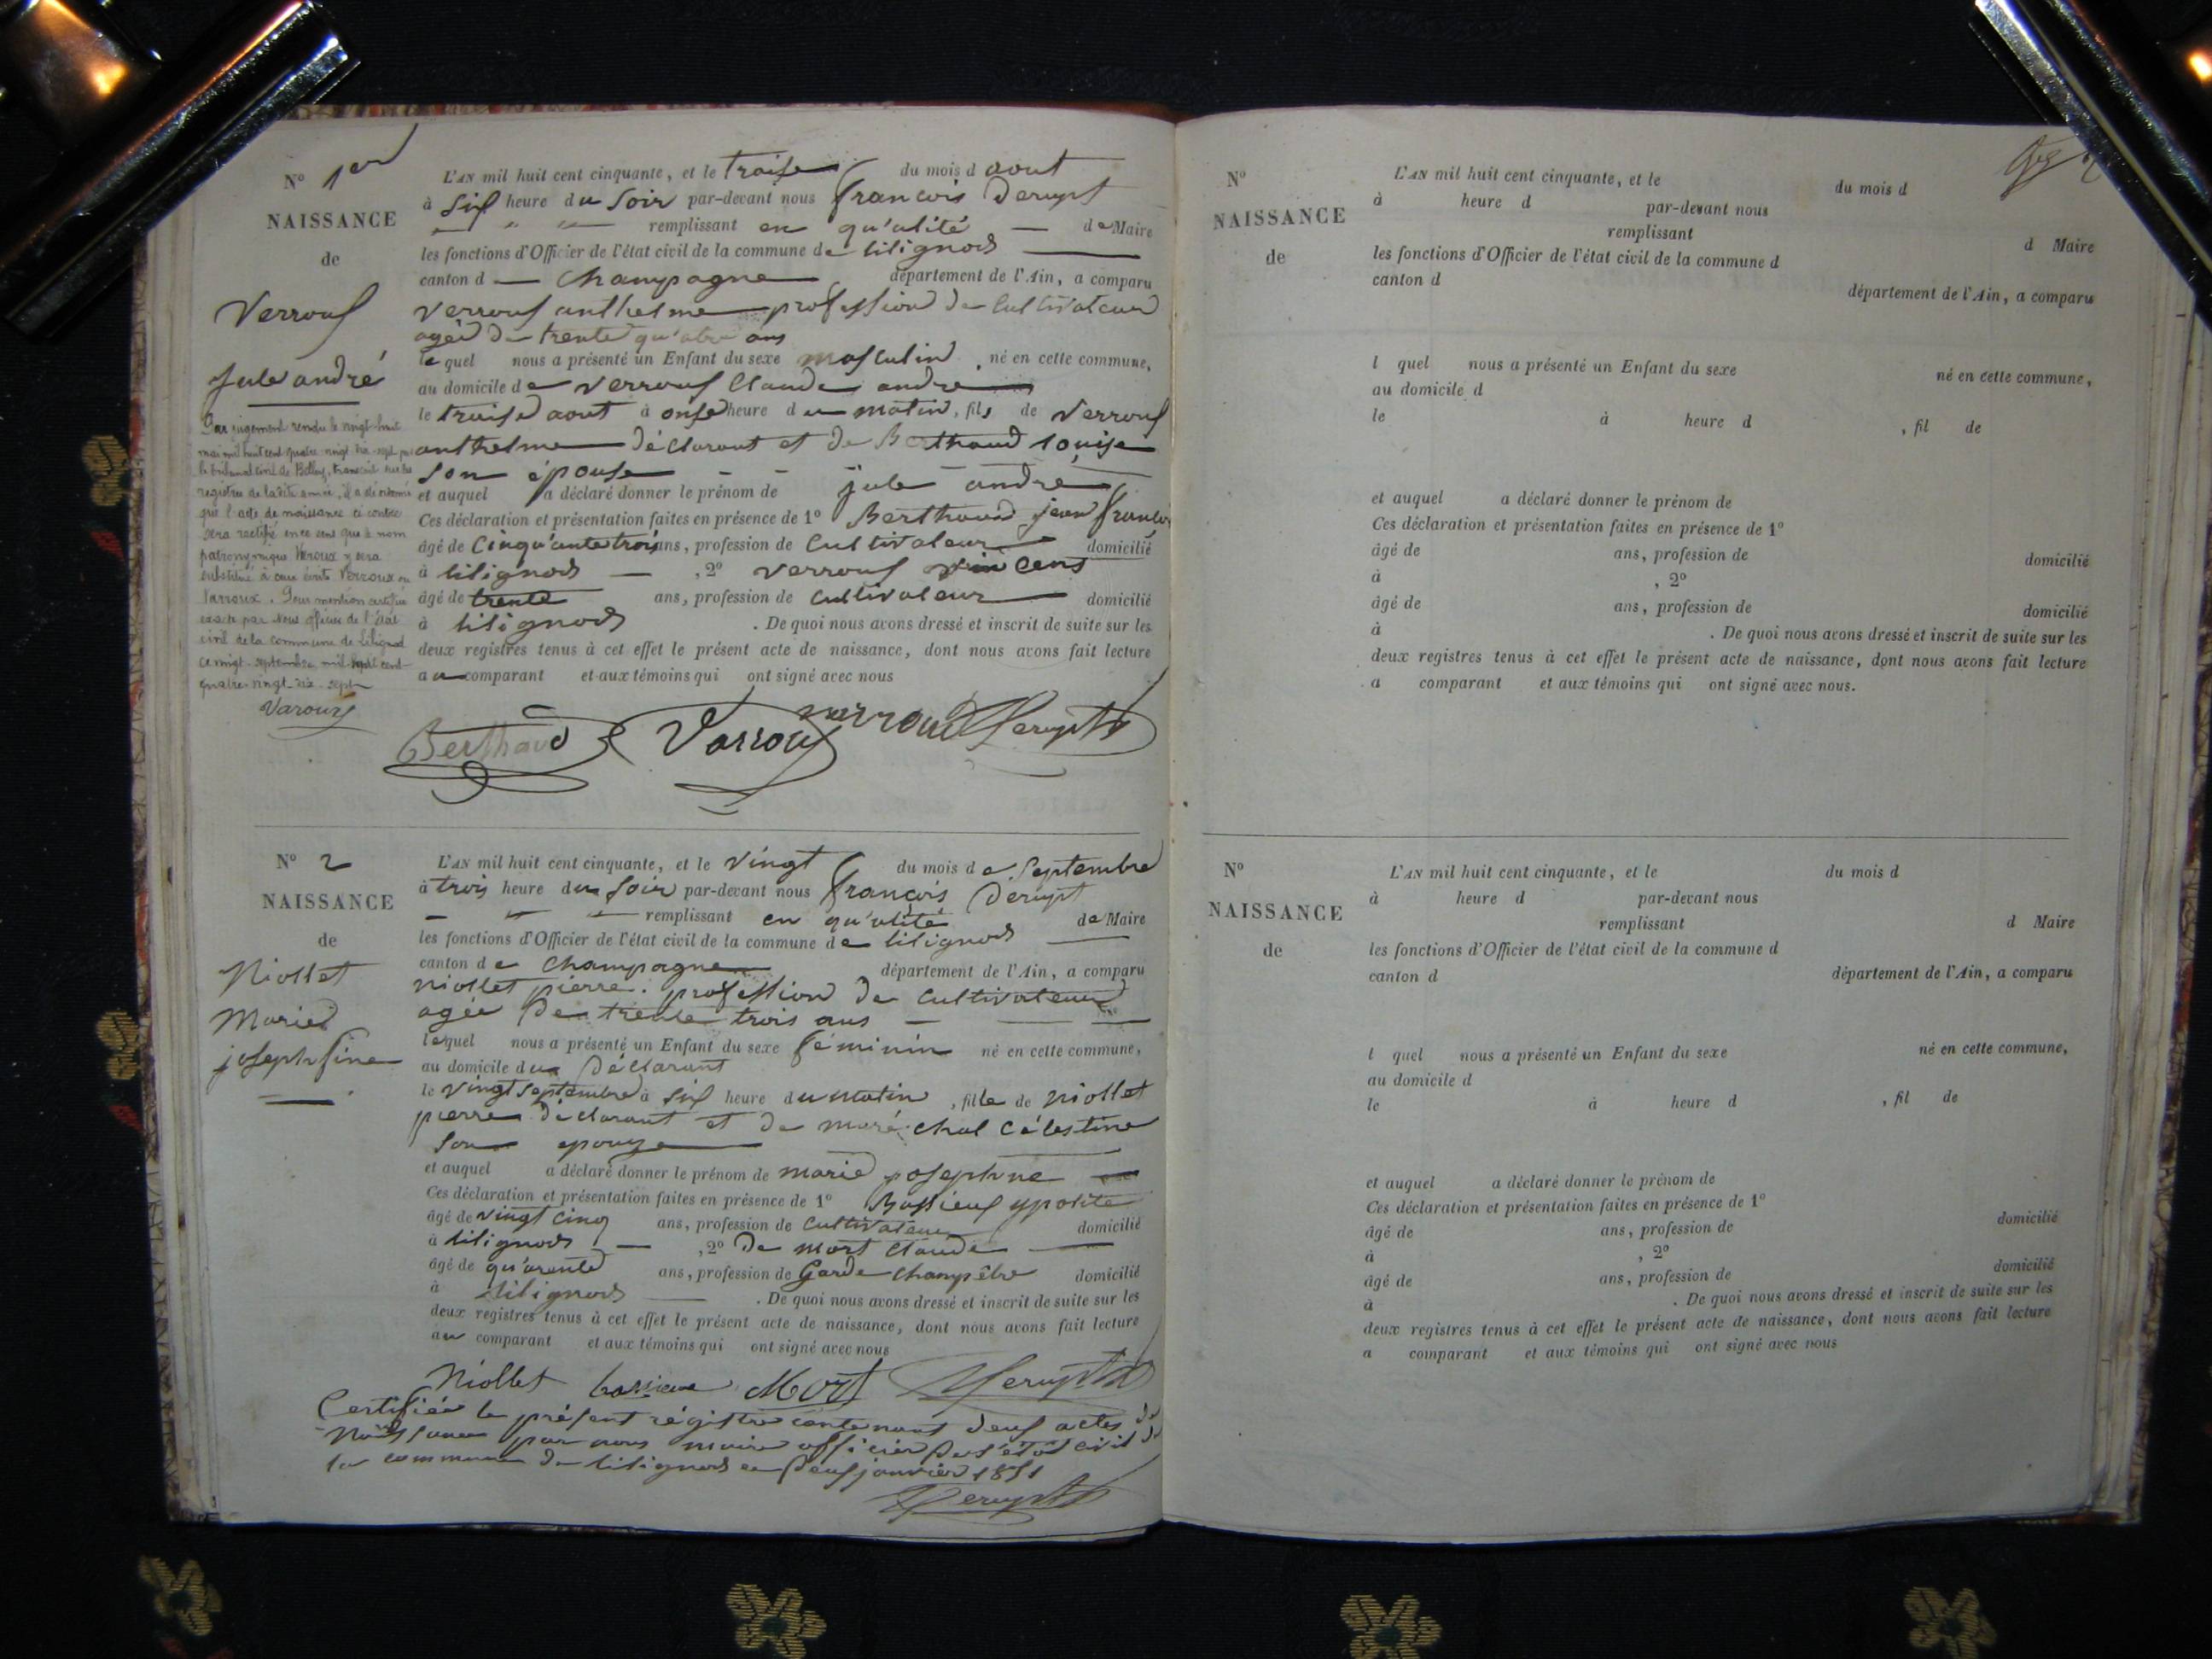 N° 1er
NAISSANCE
de
Verroux
Jule andré
Par jugement rendu le vingt-huit
mai mil huit cent quatre-vingt dix-sept par
le tribunal civil de Belley, transcrit sur les
registres de ladite année, il a été ordonné
que l'acte de naissance ci contre
sera rectifié en ce sens que le nom
patronymique Varoux y sera
substitué à ceux écrits Verroux ou
Varroux. Pour mention certifiée
exacte par Nous officier de l'état
civil de la commune de Lilignod
ce vingt septembre mil huit cent
quatre-vingt-dix-sept
Varoux
L'AN mil huit cent cinquante, et le traise du mois d aout
à Six heure du Soir par-devant nous françois Derupt
remplissant en qu'alité de Maire
les fonctions d'Officier de l'état civil de la commune de lilignods
canton d Champagne département de l'Ain, a comparu
verroux anthelme profession de Cultivateur
agée de trente qu'atre ans
lequel nous a présenté un Enfant du sexe masculin, né en cette commune,
au domicile de verroux Claude andre
le traise aout à onse heure du matin, fils de Verroux
anthelme déclarant et de Berthaud louise
son épouse
et auquel a déclaré donner le prénom de jule andre
Ces déclaration et présentation faites en présence de 1° Berthaud jean françois
âgé de Cinqu'ante trois ans, profession de Cultivateur domicilié
à lilignods, 2° verroux vincent
âgé de trente ans, profession de Cultivateur domicilié
à lilignods. De quoi nous avons dressé et inscrit de suite sur les
deux registres tenus à cet effet le présent acte de naissance, dont nous avons fait lecture
au comparant et aux témoins qui ont signé avec nous
Berthaud Varroux verroux Derupt
N° 2
NAISSANCE
de
Niollet
Marie
josephfine
L'AN mil huit cent cinquante, et le Vingt du mois de Septembre
à trois heure du Soir par-devant nous françois Derupt
remplissant en qu'alité de Maire
les fonctions d'Officier de l'état civil de la commune de lilignods
canton de Champagne département de l'Ain, a comparu
niollet pierre. profession de Cultivateur
agée De trente trois ans
lequel nous a présenté un Enfant du sexe féminin né en cette commune,
au domicile du Déclarant
le vingt septembre à six heure du matin, fille de niollet
pierre déclarant et de maréchal Célestine
son epouze
et auquel a déclaré donner le prénom de marie josephine
Ces déclaration et présentation faites en présence de 1° Bassieux ypolite
âgé de vingt cinq ans, profession de Cultivateur domicilié
à lilignods, 2° De mort Claude
âgé de qu'arente ans, profession de Garde Champêtre domicilié
à lilignods. De quoi nous avons dressé et inscrit de suite sur les
deux registres tenus à cet effet le présent acte de naissance, dont nous avons fait lecture
au comparant et aux témoins qui ont signé avec nous
Niollet bassieux Mort Derupt
Certifiée le présent régistre contenant deux actes de
Naissance par nous maire officier De l'état civil de
la commune de lilignods ce Deux janvier 1851
Derupt
N°
NAISSANCE
de
L'AN mil huit cent cinquante, et le du mois d
à heure d par-devant nous
remplissant d Maire
les fonctions d'Officier de l'état civil de la commune d
canton d département de l'Ain, a comparu
l quel nous a présenté un Enfant du sexe né en cette commune,
au domicile d
le à heure d , fil de
et auquel a déclaré donner le prénom de
Ces déclaration et présentation faites en présence de 1°
âgé de ans, profession de domicilié
à , 2°
âgé de ans, profession de domicilié
à . De quoi nous avons dressé et inscrit de suite sur les
deux registres tenus à cet effet le présent acte de naissance, dont nous avons fait lecture
a comparant et aux témoins qui ont signé avec nous.
N°
NAISSANCE
de
L'AN mil huit cent cinquante, et le du mois d
à heure d par-devant nous
remplissant d Maire
les fonctions d'Officier de l'état civil de la commune d
canton d département de l'Ain, a comparu
l quel nous a présenté un Enfant du sexe né en cette commune,
au domicile d
le à heure d , fil de
et auquel a déclaré donner le prénom de
Ces déclaration et présentation faites en présence de 1°
âgé de ans, profession de domicilié
à , 2°
âgé de ans, profession de domicilié
à . De quoi nous avons dressé et inscrit de suite sur les
deux registres tenus à cet effet le présent acte de naissance, dont nous avons fait lecture
a comparant et aux témoins qui ont signé avec nous